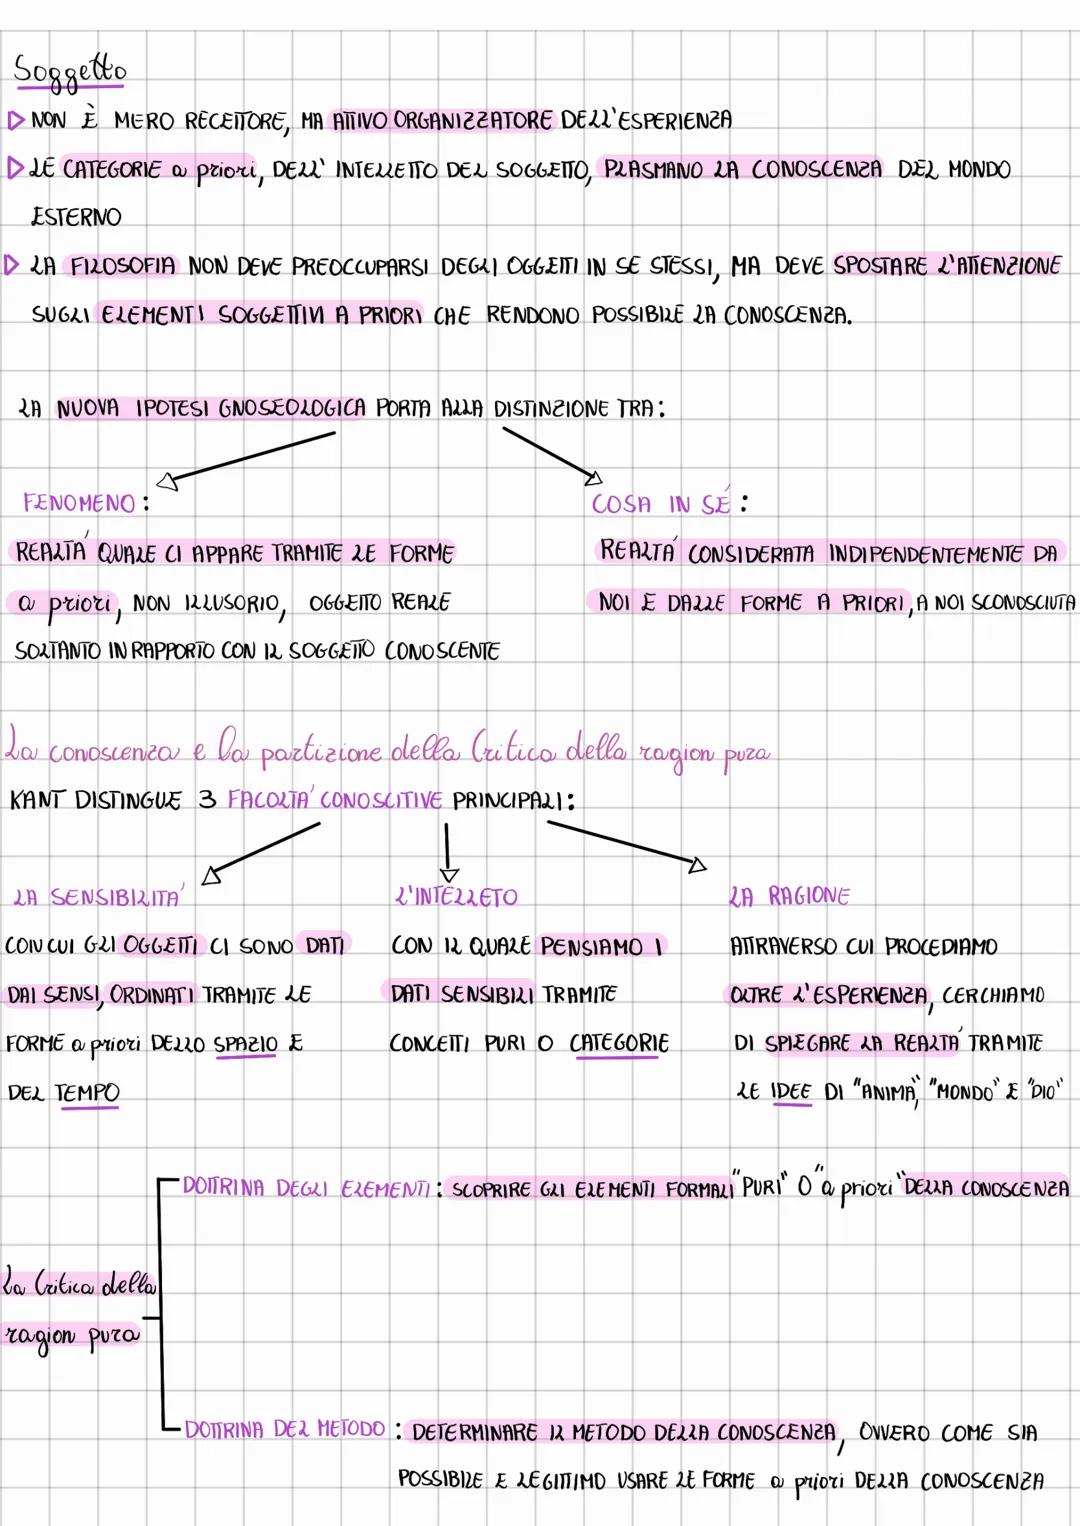 Soggetto
NON È MERO RECETTORE, MA ATTIVO ORGANIZZATORE DELL'ESPERIENZA
LE CATEGORIE a priori, DELL' INTELLETTO DEL SOGGETTO, PLASMANO LA CONOSCENZA DEL MONDO
ESTERNO
LA FILOSOFIA NON DEVE PREOCCUPARSI DEGLI OGGETTI IN SE STESSI, MA DEVE SPOSTARE L'ATTENZIONE
SUGLI ELEMENTI SOGGETTIVI A PRIORI CHE RENDONO POSSIBILE LA CONOSCENZA.
LA NUOVA IPOTESI GNOSEOLOGICA PORTA ALLA DISTINZIONE TRA:
FENOMENO:
REALTA' QUALE CI APPARE TRAMITE LE FORME
a priori, NON ILLUSORIO, OGGETTO REALE
SOLTANTO IN RAPPORTO CON IL SOGGETTO CONOSCENTE
COSA IN SÉ:
REALTA' CONSIDERATA INDIPENDENTEMENTE DA
NOI E DALLE FORME A PRIORI, A NOI SCONOSCIUTA
La conoscenza e la partizione della Critica della ragion pura
KANT DISTINGUE 3 FACOLTA' CONOSCITIVE PRINCIPALI:
LA SENSIBILITA'
CON CUI GLI OGGETTI CI SONO DATI
DAI SENSI, ORDINATI TRAMITE LE
FORME a priori DELLO SPAZIO E
DEL TEMPO
L'INTELLETO
CON IL QUALE PENSIAMO I
DATI SENSIBILI TRAMITE
CONCETTI PURI O CATEGORIE
LA RAGIONE
ATTRAVERSO CUI PROCEDIAMO
OLTRE L'ESPERIENZA, CERCHIAMO
DI SPIEGARE LA REALTA' TRAMITE
LE IDEE DI "ANIMA", "MONDO" E "DIO"
DOTTRINA DEGLI ELEMENTI: SCOPRIRE GLI ELEMENTI FORMALI "PURI" O "a priori" DELLA CONOSCENZA
La Critica della
ragion pura
DOTTRINA DEL METODO: DETERMINARE IL METODO DELLA CONOSCENZA, OVVERO COME SIA
POSSIBILE E LEGITTIMO USARE LE FORME a priori DELLA CONOSCENZA